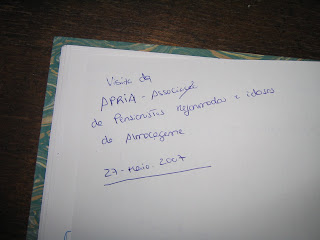 Visita da
APRIA - Associação
de Pensionistas Reformados e idosos
de Almoçageme
27 - Maio - 2007